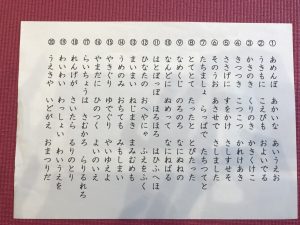 ① あめんぼ あかいな あいうえお
② うきもに こえびも およいでる
③ かきのき くりのき かきくけこ
④ きつつき こつこつ かれけやき
⑤ ささげに すをかけ さしすせそ
⑥ そのうお あさせで さしました
⑦ たちましょ らっぱで たちつてと
⑧ とてとて たったと とびたった
⑨ なめくじ のろのろ なにぬねの
⑩ なんどに ぬめって なにねばる
⑪ はとぽっぽ ほろほろ はひふへほ
⑫ ひなたの おへやにゃ ふえをふく
⑬ まいまい ねじまき まみむめも
⑭ うめのみ おちても みもしまい
⑮ やきぐり ゆでぐり やいゆえよ
⑯ やまだに ひのつく よいのいえ
⑰ らいちょうは さむかろ らりるれろ
⑱ れんげが さいたら るりのとり
⑲ わいわい わっしょい わいうえを
⑳ うえきや いどがえ おまつりだ